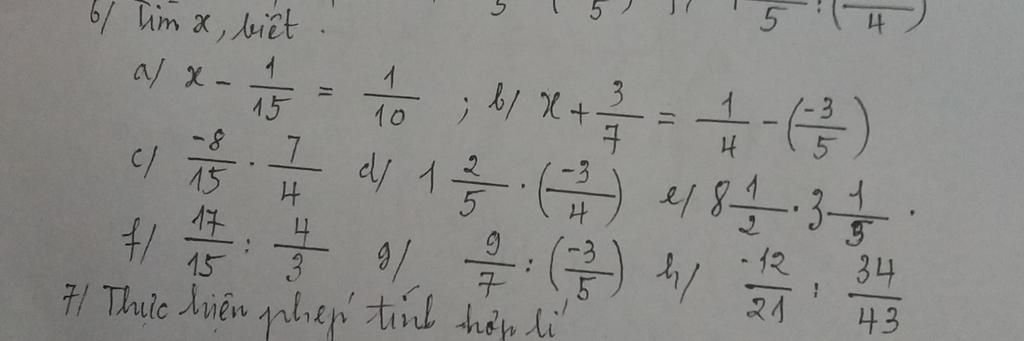 5 ( 5 ) 5 : ( 4 )
6/ Tìm x, biết .
a/ x - 1/15 = 1/10 ; b/ x + 3/7 = 1/4 - (-3/5)
c/ -8/15 . 7/4 d/ 1 2/5 . (-3/4) e/ 8 1/2 . 3 1/5 .
f/ 17/15 : 4/3 g/ 9/7 : (-3/5) h/ -12/21 : 34/43
7/ Thực hiện phép tính hợp lí